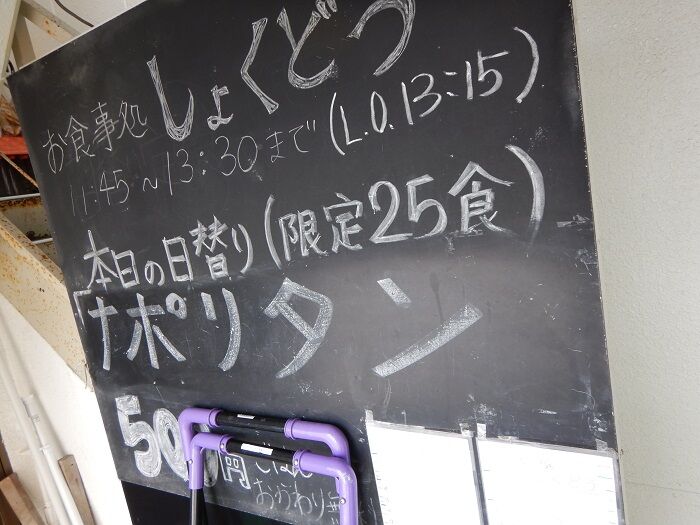 お食事処 しょくどう
11:45～13:30まで (L.O.13:15)
本日の日替り(限定25食)
「ナポリタン
500円 ごはん
おかわり無